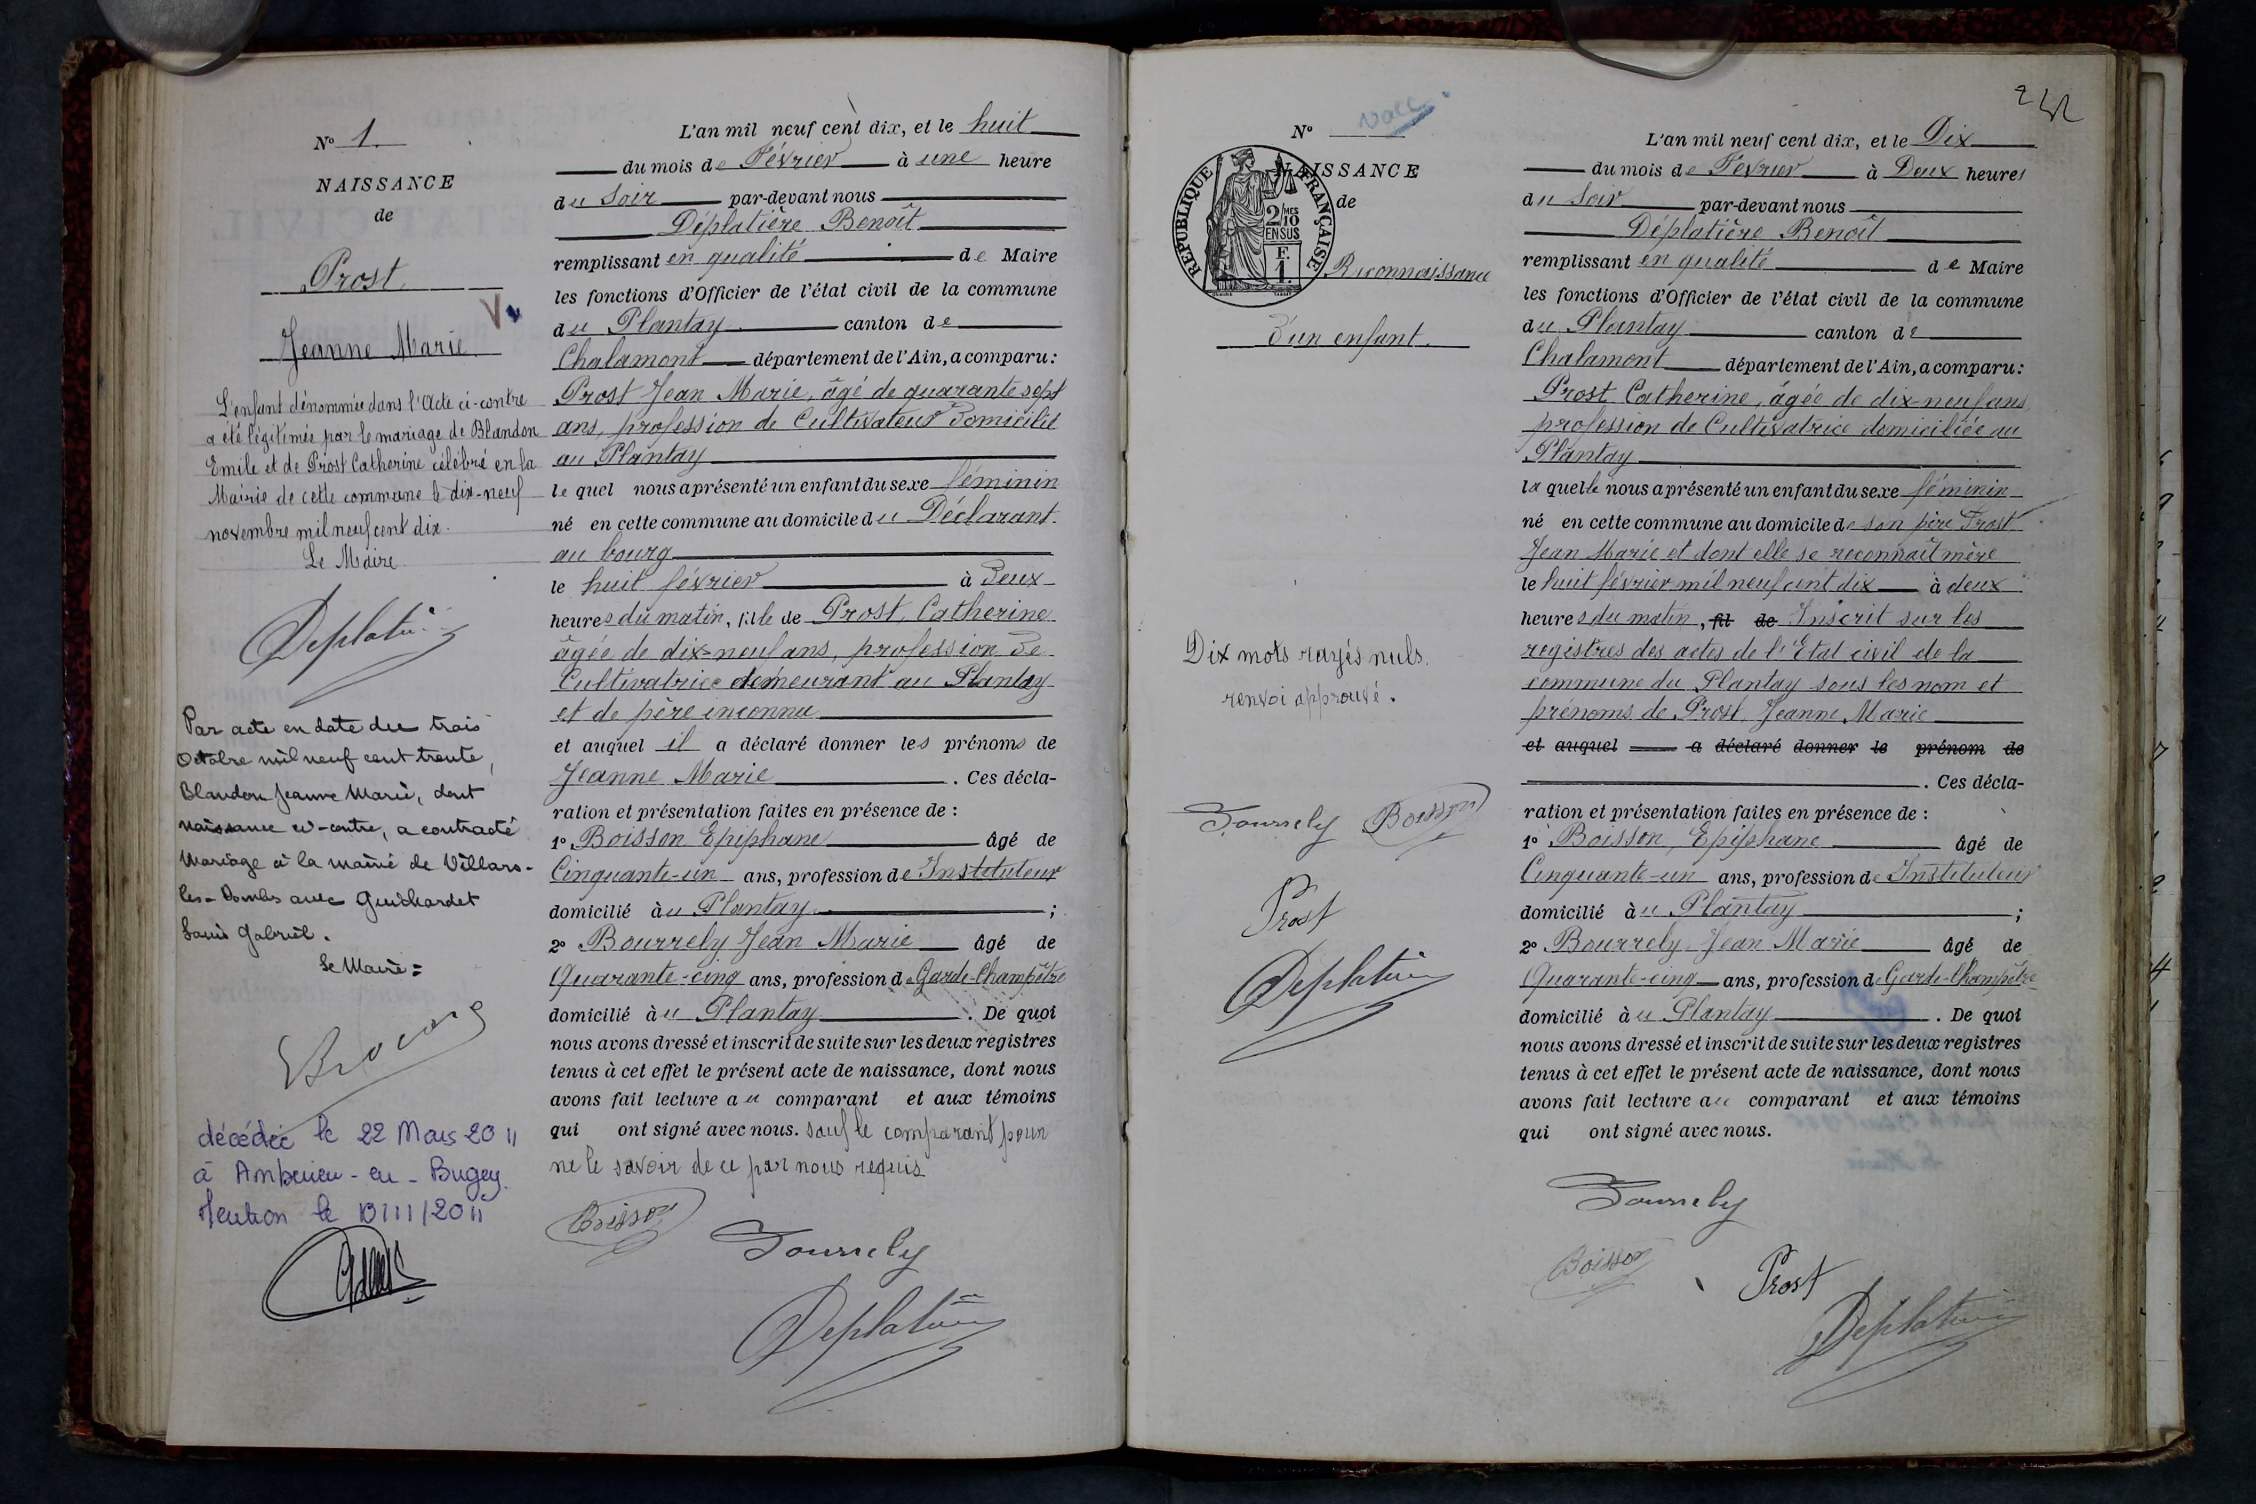 N° 1.
NAISSANCE
de
Prost
Jeanne Marie
L'enfant dénommée dans l'Acte ci-contre
a été légitimée par le mariage de Blandon
Emile et de Prost Catherine célébré en la
Mairie de cette commune le dix-neuf
novembre mil neuf cent dix.
Le Maire
Deplatière
Par acte en date du trois
Octobre mil neuf cent trente,
Blandon Jeanne Marie, dont
naissance ci-contre, a contracté
Mariage à la mairie de Villars-
les-Dombes avec Guichardet
Louis Gabriel.
Le Maire =
décédée le 22 Mars 2011
à Ambérieu-en-Bugey.
Mention le
L'an mil neuf cent dix, et le huit
du mois de Février à une heure
du Soir par-devant nous
Déplatière Benoît
remplissant en qualité de Maire
les fonctions d'Officier de l'état civil de la commune
du Plantay canton de
Chalamont département de l'Ain, a comparu :
Prost Jean Marie, âgé de quarante sept
ans, profession de Cultivateur domicilié
au Plantay
le quel nous a présenté un enfant du sexe féminin
né en cette commune au domicile du Déclarant
au bourg
le huit février à deux
heures du matin, fille de Prost Catherine
âgée de dix-neuf ans, profession de
Cultivatrice demeurant au Plantay
et de père inconnu
et auquel il a déclaré donner les prénoms de
Jeanne Marie . Ces décla-
ration et présentation faites en présence de :
1° Boisson Epiphane âgé de
Cinquante-un ans, profession de Instituteur
domicilié au Plantay ;
2° Bourrely Jean Marie âgé de
Quarante-cinq ans, profession de Garde-Champêtre
domicilié au Plantay . De quoi
nous avons dressé et inscrit de suite sur les deux registres
tenus à cet effet le présent acte de naissance, dont nous
avons fait lecture au comparant et aux témoins
qui ont signé avec nous. sauf le comparant pour
ne le savoir de ce par nous requis
Boisson
Bourrely
Deplatière
242
N° vacc.
NAISSANCE
de
RÉPUBLIQUE FRANÇAISE
2/10 MES
EN SUS
F.
1.
Reconnaissance
d'un enfant.
Dix mots rayés nuls.
renvoi approuvé.
Bourrely Boisson
Prost
Deplatière
L'an mil neuf cent dix, et le Dix
du mois de Février à Deux heures
du Soir par-devant nous
Déplatière Benoît
remplissant en qualité de Maire
les fonctions d'Officier de l'état civil de la commune
du Plantay canton de
Chalamont département de l'Ain, a comparu :
Prost Catherine, âgée de dix-neuf ans
profession de Cultivatrice domiciliée au
Plantay
la quelle nous a présenté un enfant du sexe féminin
né en cette commune au domicile de son père Prost
Jean Marie et dont elle se reconnaît mère
le huit février mil neuf cent dix à deux
heures du matin, fil de Inscrit sur les
registres des actes de l'Etat civil de la
commune du Plantay sous les nom et
prénoms de Prost Jeanne Marie
et auquel a déclaré donner le prénom de
. Ces décla-
ration et présentation faites en présence de :
1° Boisson, Epiphane âgé de
Cinquante-un ans, profession de Instituteur
domicilié au Plantay ;
2° Bourrely Jean Marie âgé de
Quarante-cinq ans, profession de Garde-Champêtre
domicilié au Plantay . De quoi
nous avons dressé et inscrit de suite sur les deux registres
tenus à cet effet le présent acte de naissance, dont nous
avons fait lecture au comparant et aux témoins
qui ont signé avec nous.
Bourrely
Boisson
Prost
Deplatière